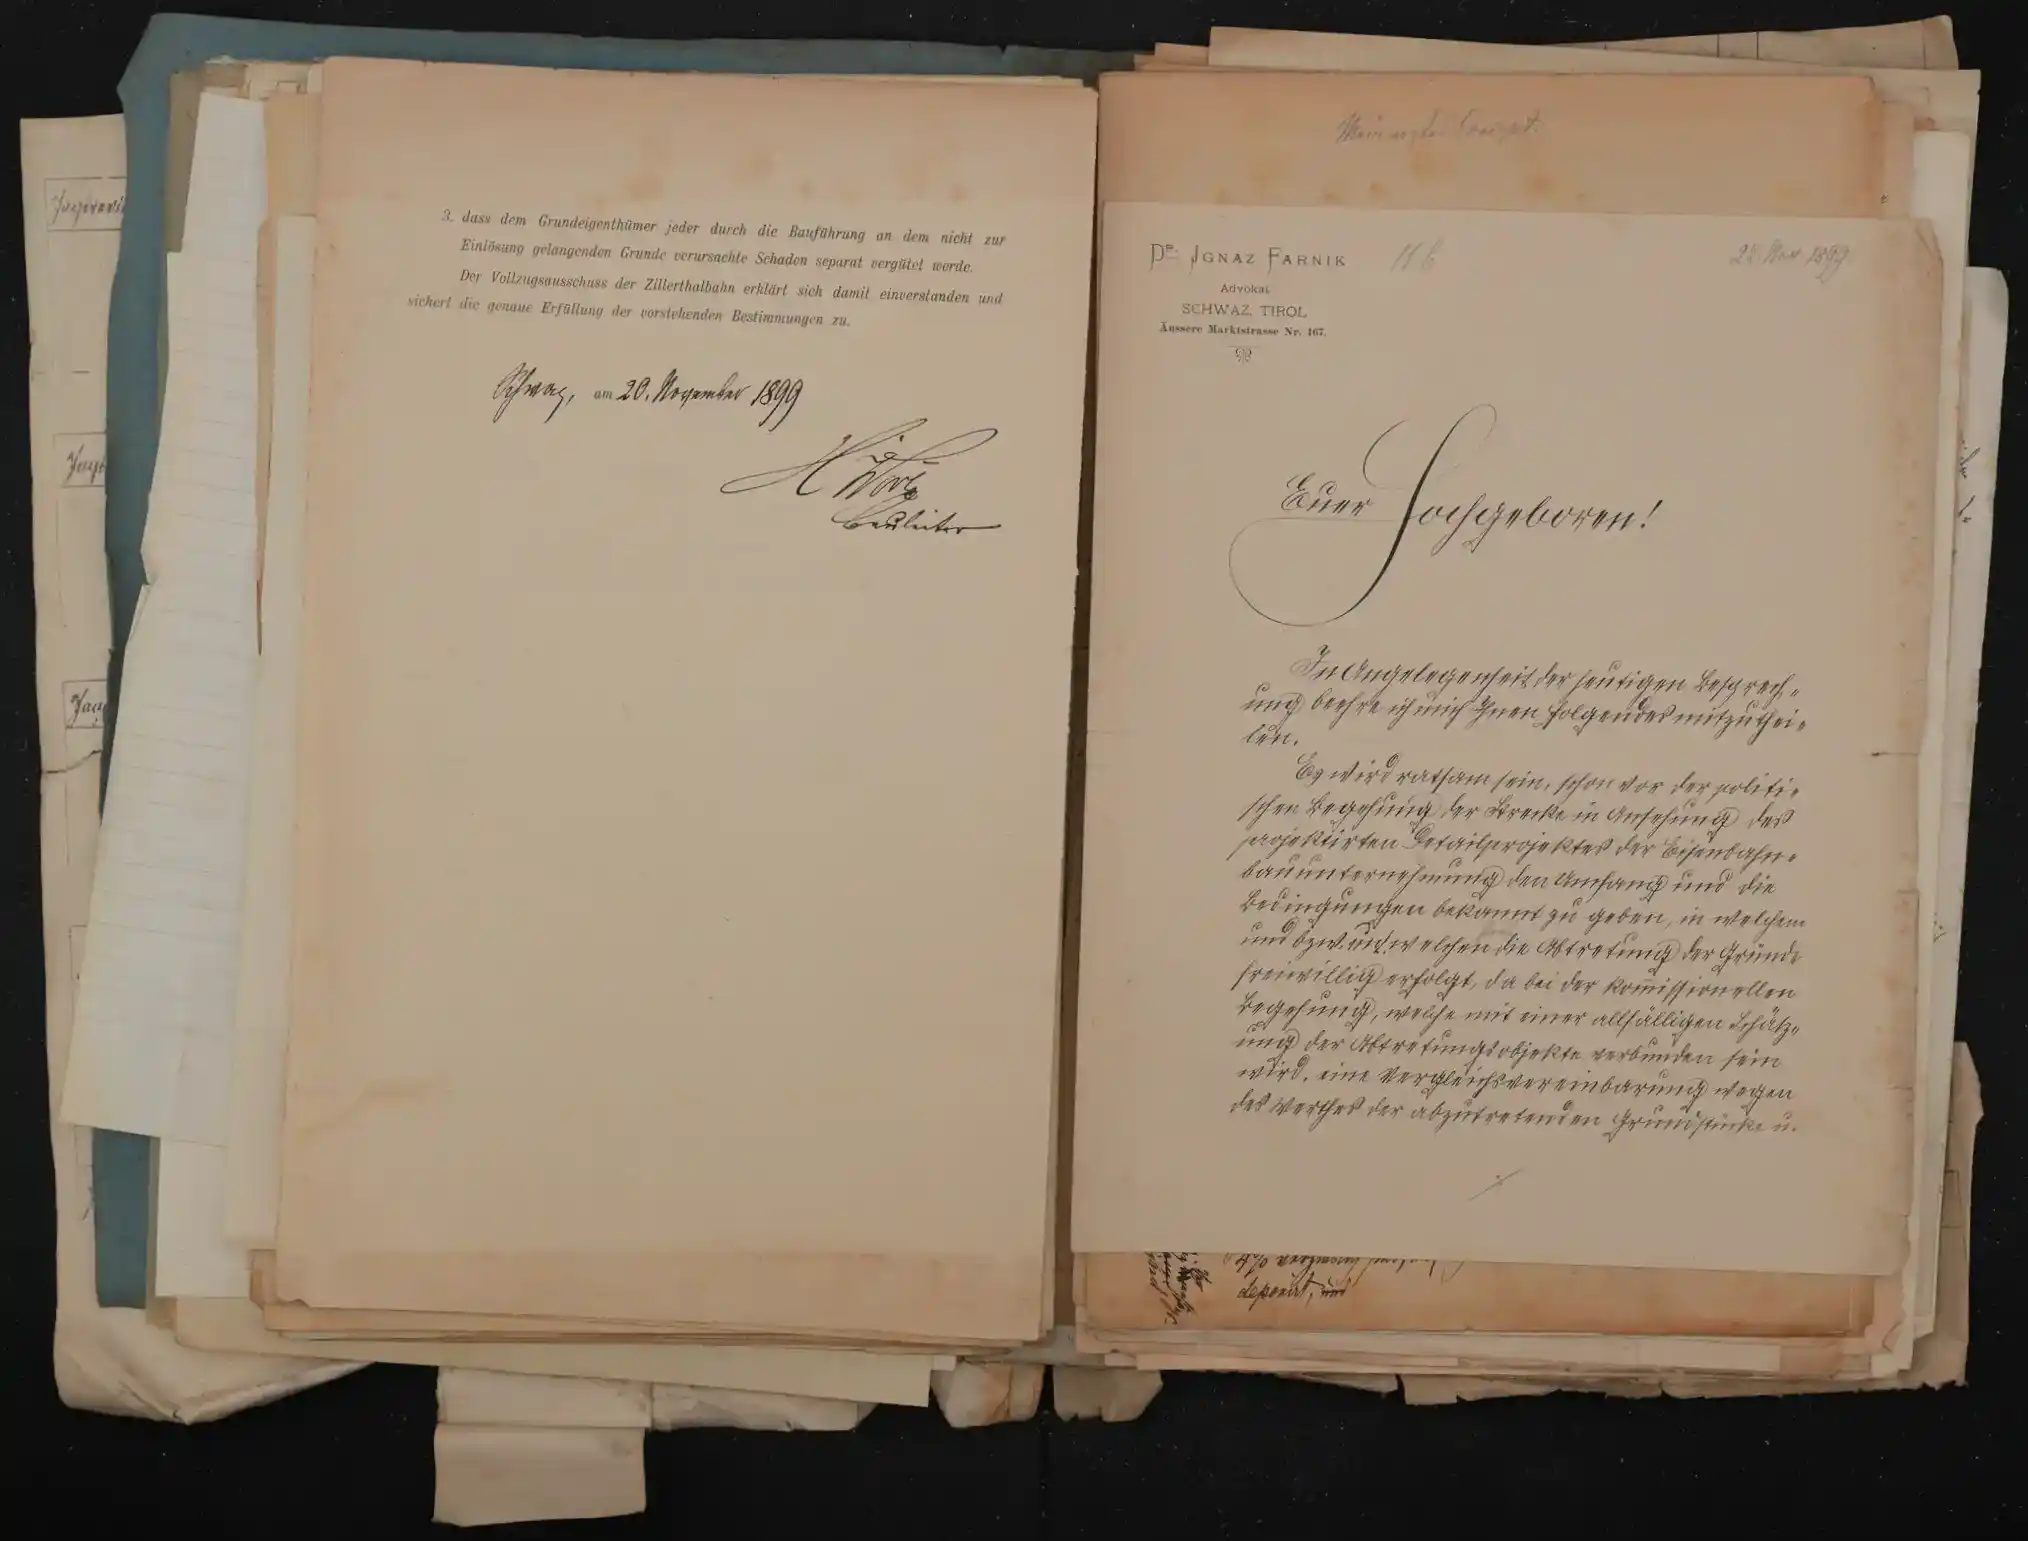 3. dass dem Grundeigenthümer jeder durch die Bauführung an dem nicht zur
Einlösung gelangenden Grunde verursachte Schaden separat vergütet werde.
Der Vollzugsausschuss der Zillerthalbahn erklärt sich damit einverstanden und
sichert die genaue Erfüllung der vorstehenden Bestimmungen zu.
Schwaz, am 20. November 1899
Bauleiter
Dr. Ignaz Farnik
Advokat
SCHWAZ, TIROL
Äussere Marktstrasse Nr. 167.
22. Nov 1899
Euer Hochgeboren!
In Angelegenheit der heutigen Besprech-
ung beehre ich mich Ihnen folgendes mitzuthei-
len.
Es wird ratsam sein, schon vor der politi-
schen Begehung der Strecke in Ansehung des
projektirten Detailprojektes der Eisenbahn-
bauunternehmung den Umfang und die
Bedingungen bekannt zu geben, in welchem
und bzw. unt. welchen die Abtretung der Gründe
freiwillig erfolgt, da bei der kommissionellen
Begehung, welche mit einer allfälligen Schätz-
ung der Abtretungsobjekte verbunden sein
wird, eine Vergleichsvereinbarung wegen
des Werthes der abzutretenden Grundstücke u.
./.
deponirt, und